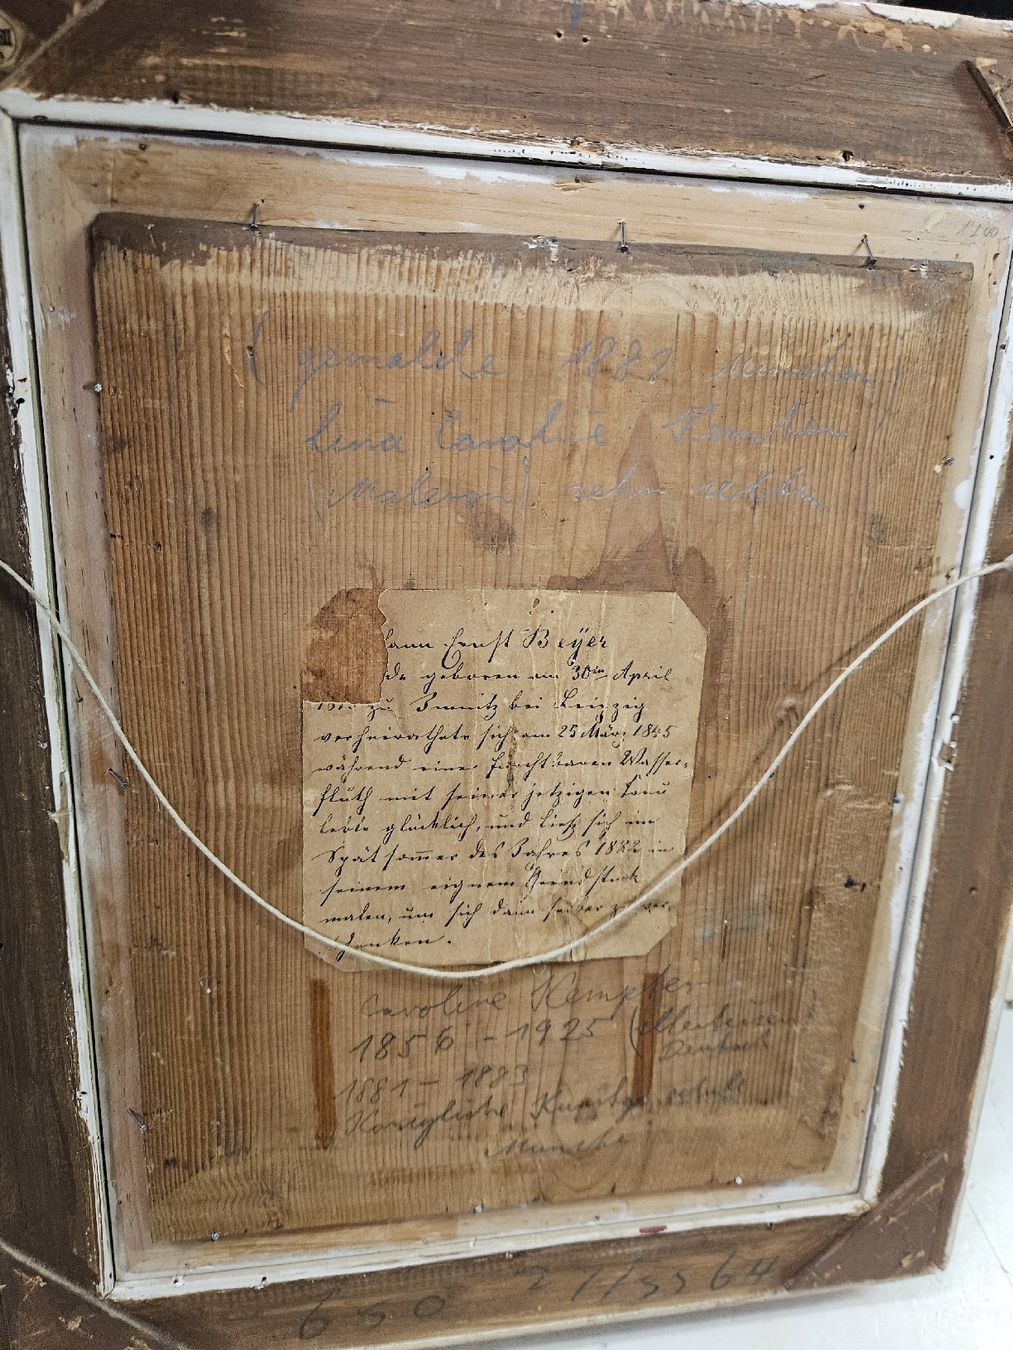 1200,-
( gemalde 1882 Munchen )
Lina Caroline Kempter
(Malerin) sehr selten
hann Ernst Beyer
de geboren am 30ten April
zu Zwenitz bei Leipzig
verheirathete sich am 25 März 1845
während einer furchtbaren Wasser-
fluth mit seiner jetzigen Frau
lebte glücklich, und ließ sich im
Spätsommer des Jahres 1882 in
seinem eignem Grundstück
malen, um sich dann selber zu ver-
schenken.
Caroline Kempter
1856 - 1925
1881 - 1883
Königliche Kunstgewerbeschule
Munche
650